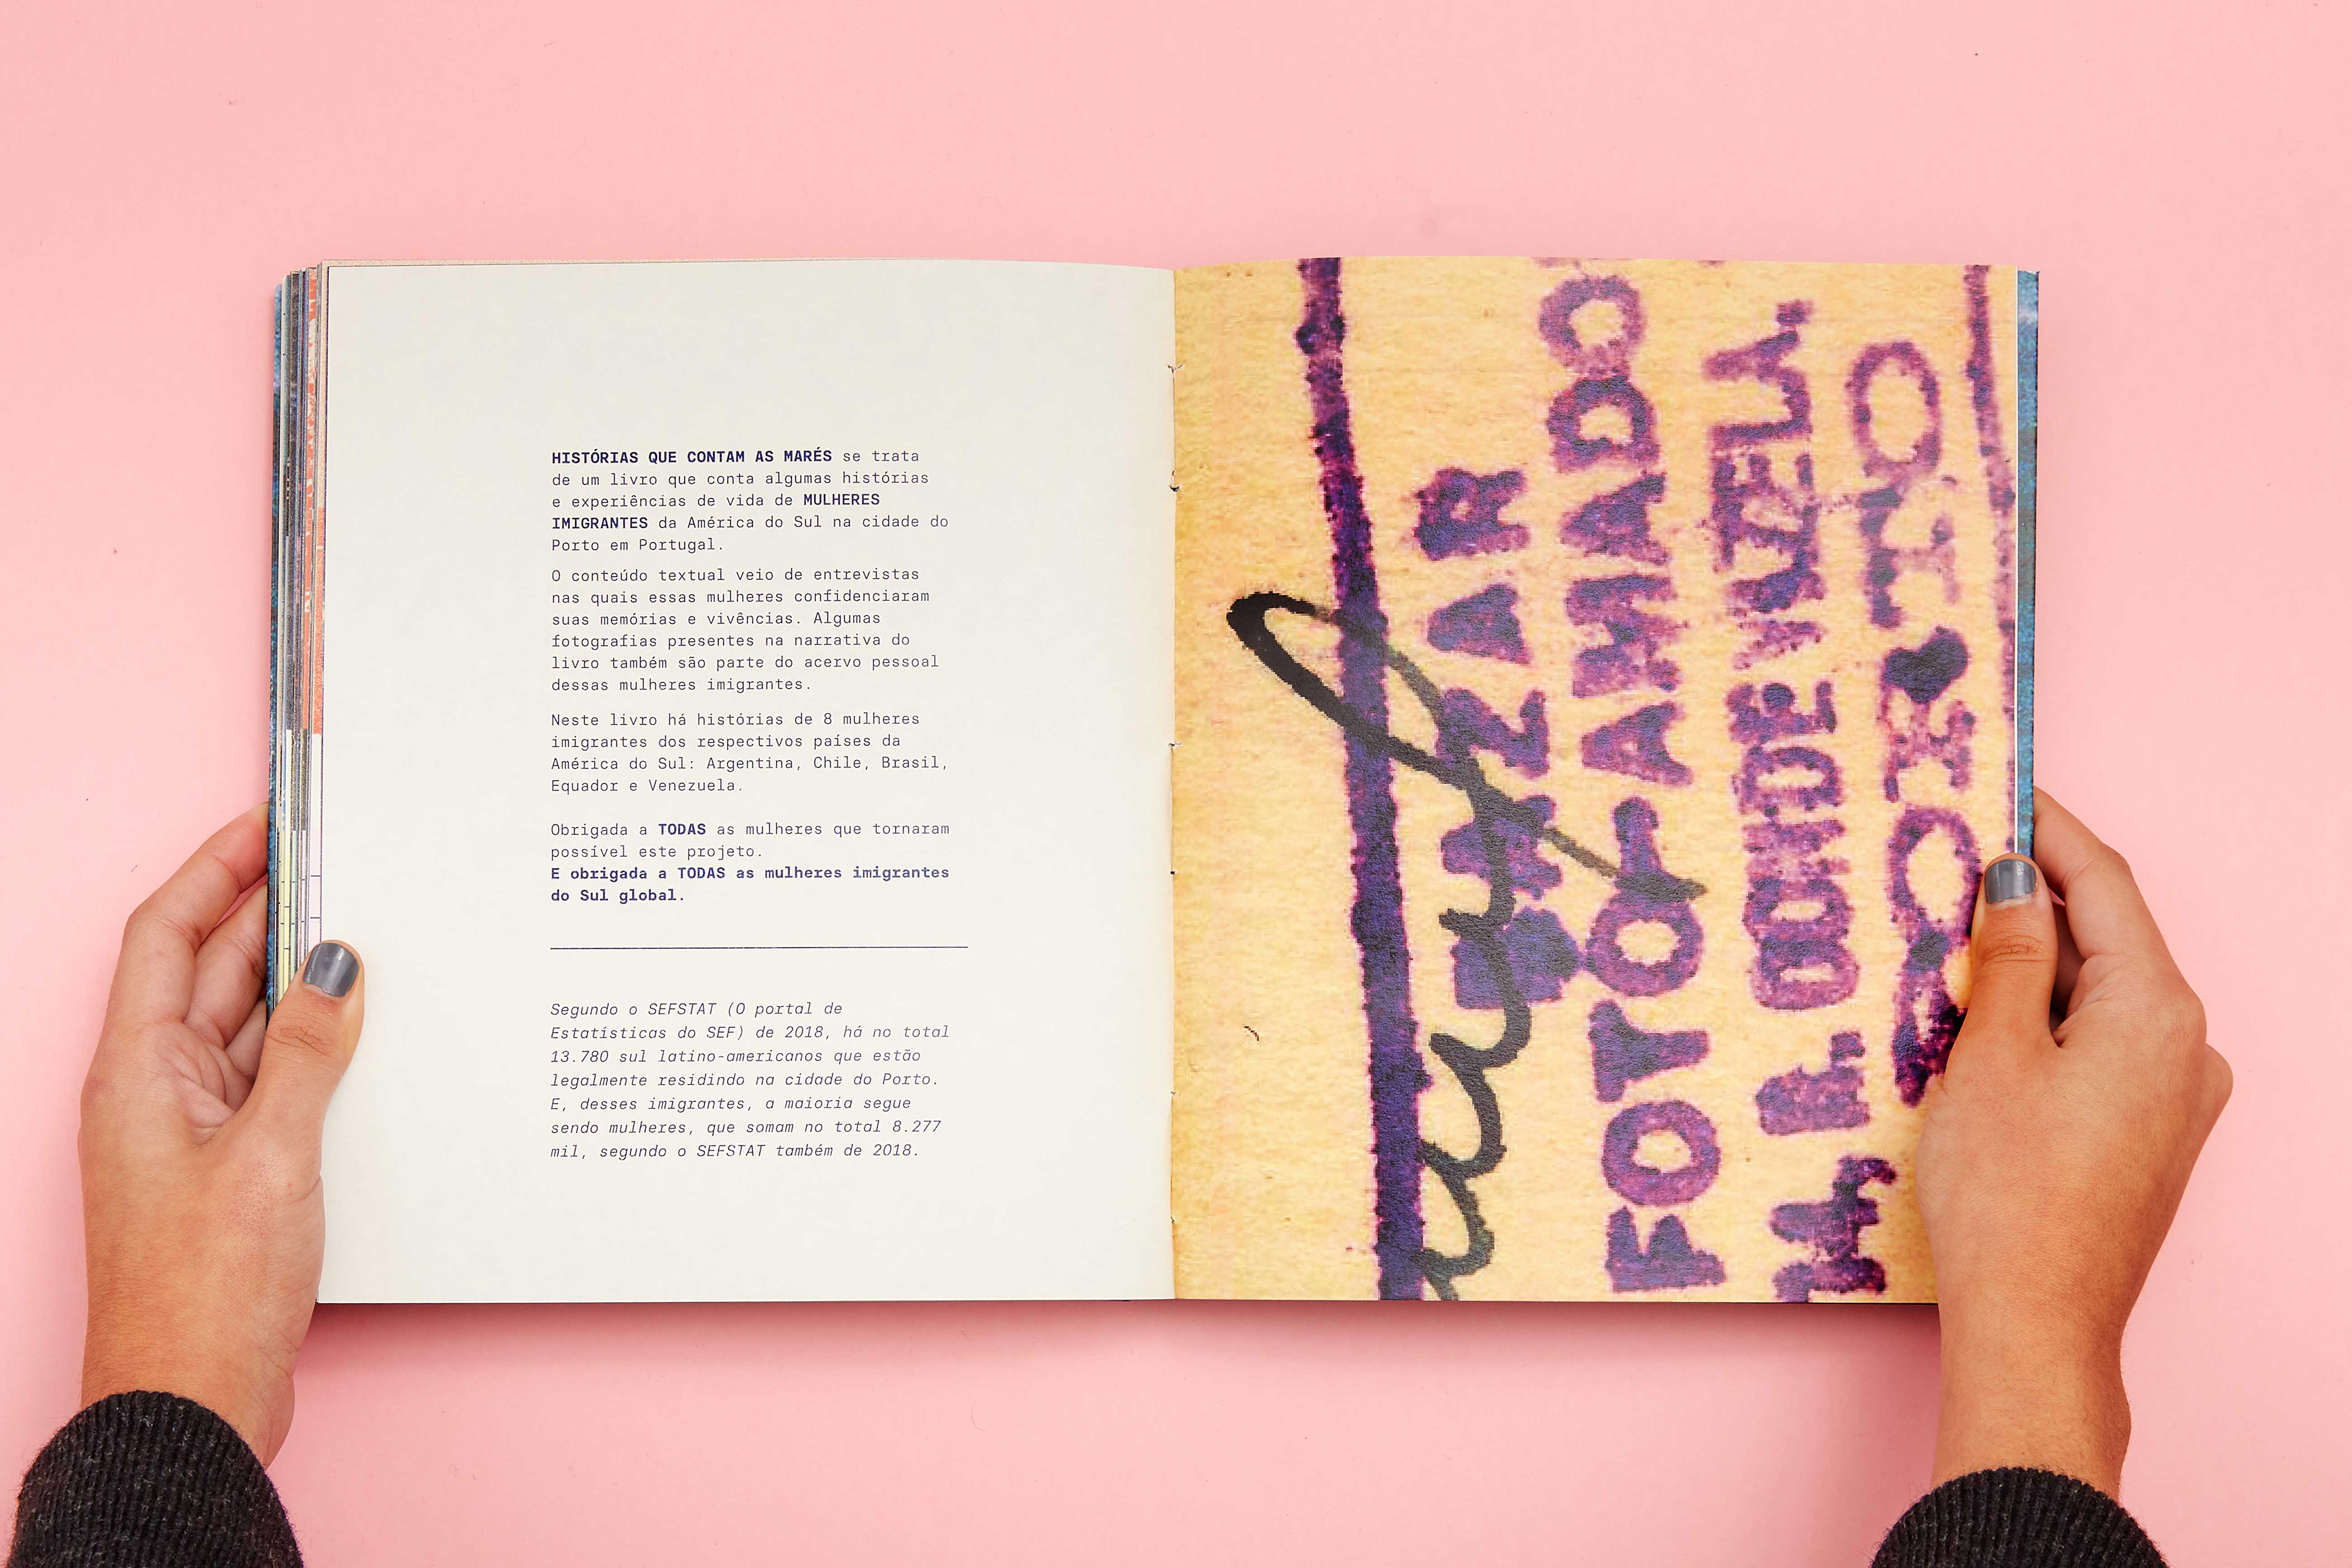 HISTÓRIAS QUE CONTAM AS MARÉS se trata
de um livro que conta algumas histórias
e experiências de vida de MULHERES
IMIGRANTES da América do Sul na cidade do
Porto em Portugal.
O conteúdo textual veio de entrevistas
nas quais essas mulheres confidenciaram
suas memórias e vivências. Algumas
fotografias presentes na narrativa do
livro também são parte do acervo pessoal
dessas mulheres imigrantes.
Neste livro há histórias de 8 mulheres
imigrantes dos respectivos países da
América do Sul: Argentina, Chile, Brasil,
Equador e Venezuela.
Obrigada a TODAS as mulheres que tornaram
possível este projeto.
E obrigada a TODAS as mulheres imigrantes
do Sul global.
Segundo o SEFSTAT (O portal de
Estatísticas do SEF) de 2018, há no total
13.780 sul latino-americanos que estão
legalmente residindo na cidade do Porto.
E, desses imigrantes, a maioria segue
sendo mulheres, que somam no total 8.277
mil, segundo o SEFSTAT também de 2018.
FOTO-AMADO